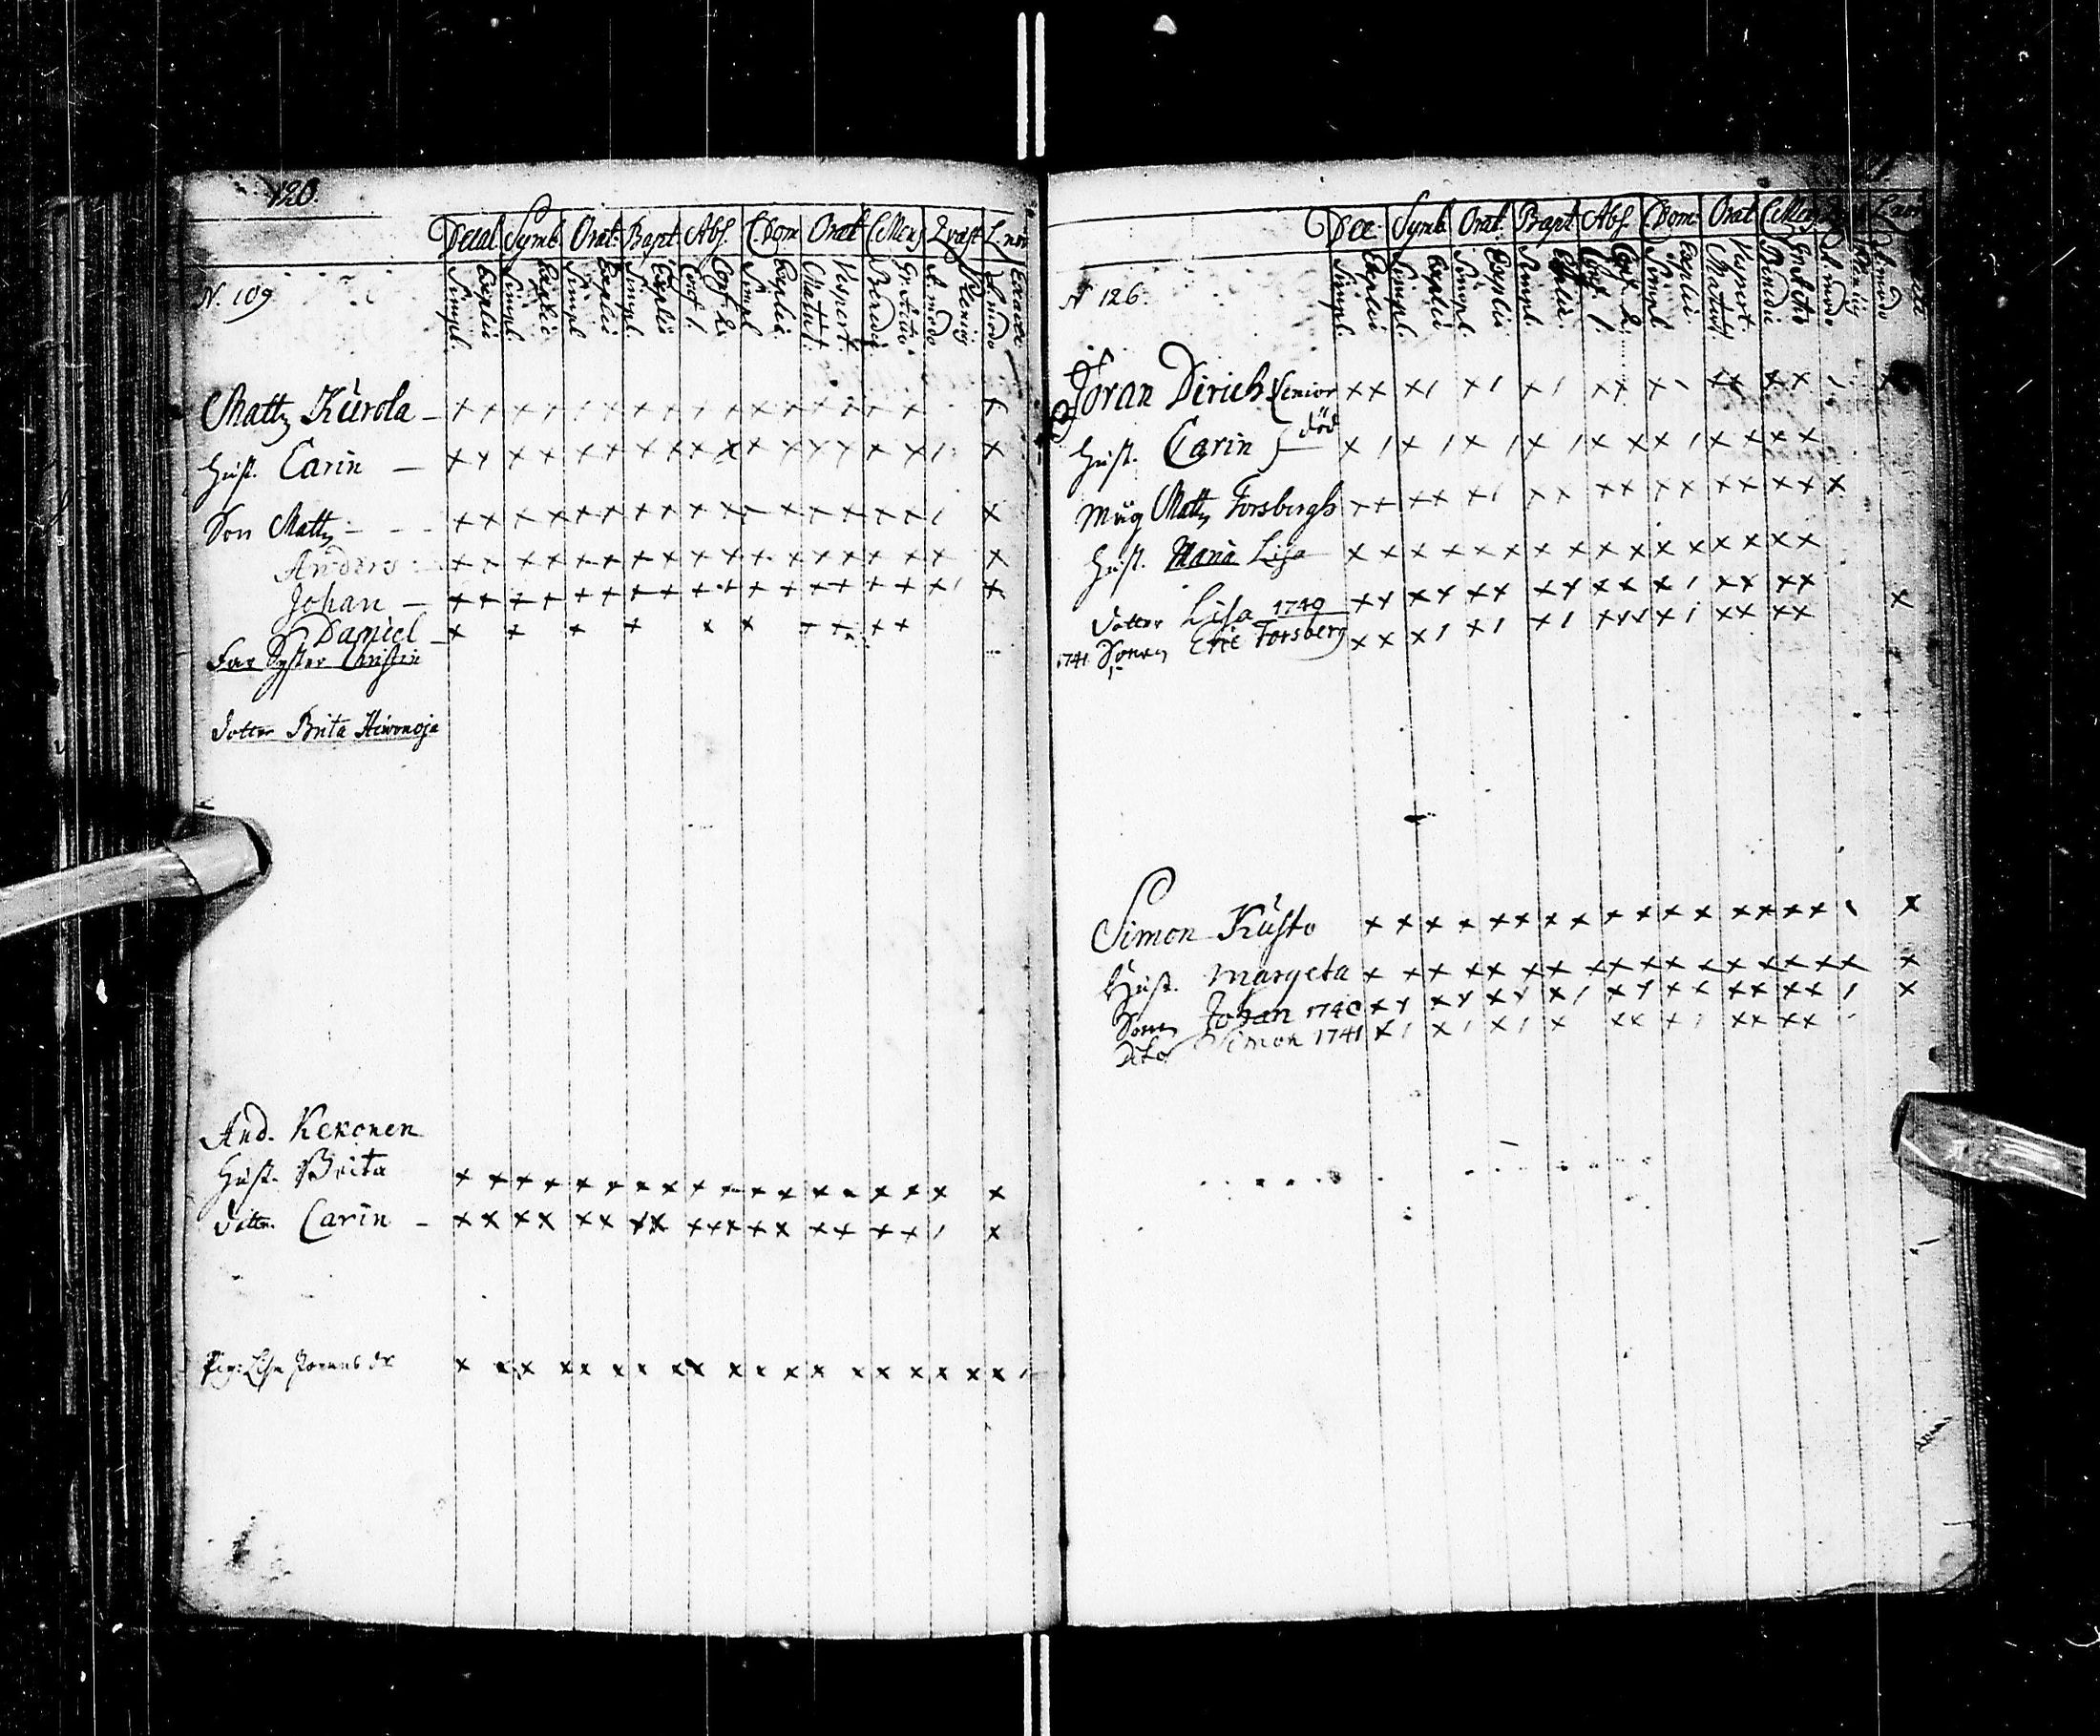 120.
Decal Symb Orat: Bapt Abs. C Dom Orat C Mens Qvæst L. nov
Simpl. Explic Simpl. Explic Simpl Explic Simpl. Explic Conf. 1. Conf. 2. Simpl Explic Matut: Vespert. Bened: Gratia. A. modo Plenig A modo Exacte
N. 109
Matts Kurola –
Hust. Carin –
Son Matts – –
Anders –
Johan –
Daniel –
Far Syster Christin
Dotter Brita
And. Kekonen
Hust. Brita
Dottr. Carin –
Pig: Lisa
Dec. Symb Orat. Bapt Abs. C Dom: Orat C Mens L nov
Simpl. Explic Simpl. Explic Simpl. Explic Simpl. Explic. Conf. 1 Conf. 2. Simpl. Explic. Matut Vespert. Benedic A modo Plenig A modo
N 126.
Jöran Dirich Senior
död
Hust. Carin
Måg Matts Forsbergh
Hust. Maria Lisa
Dotter Lisa 1740
1741 Sonen Eric Forsberg
Simon Kusto
Hust. Margeta
Sonen Johan 1740
Dito Simon 1741